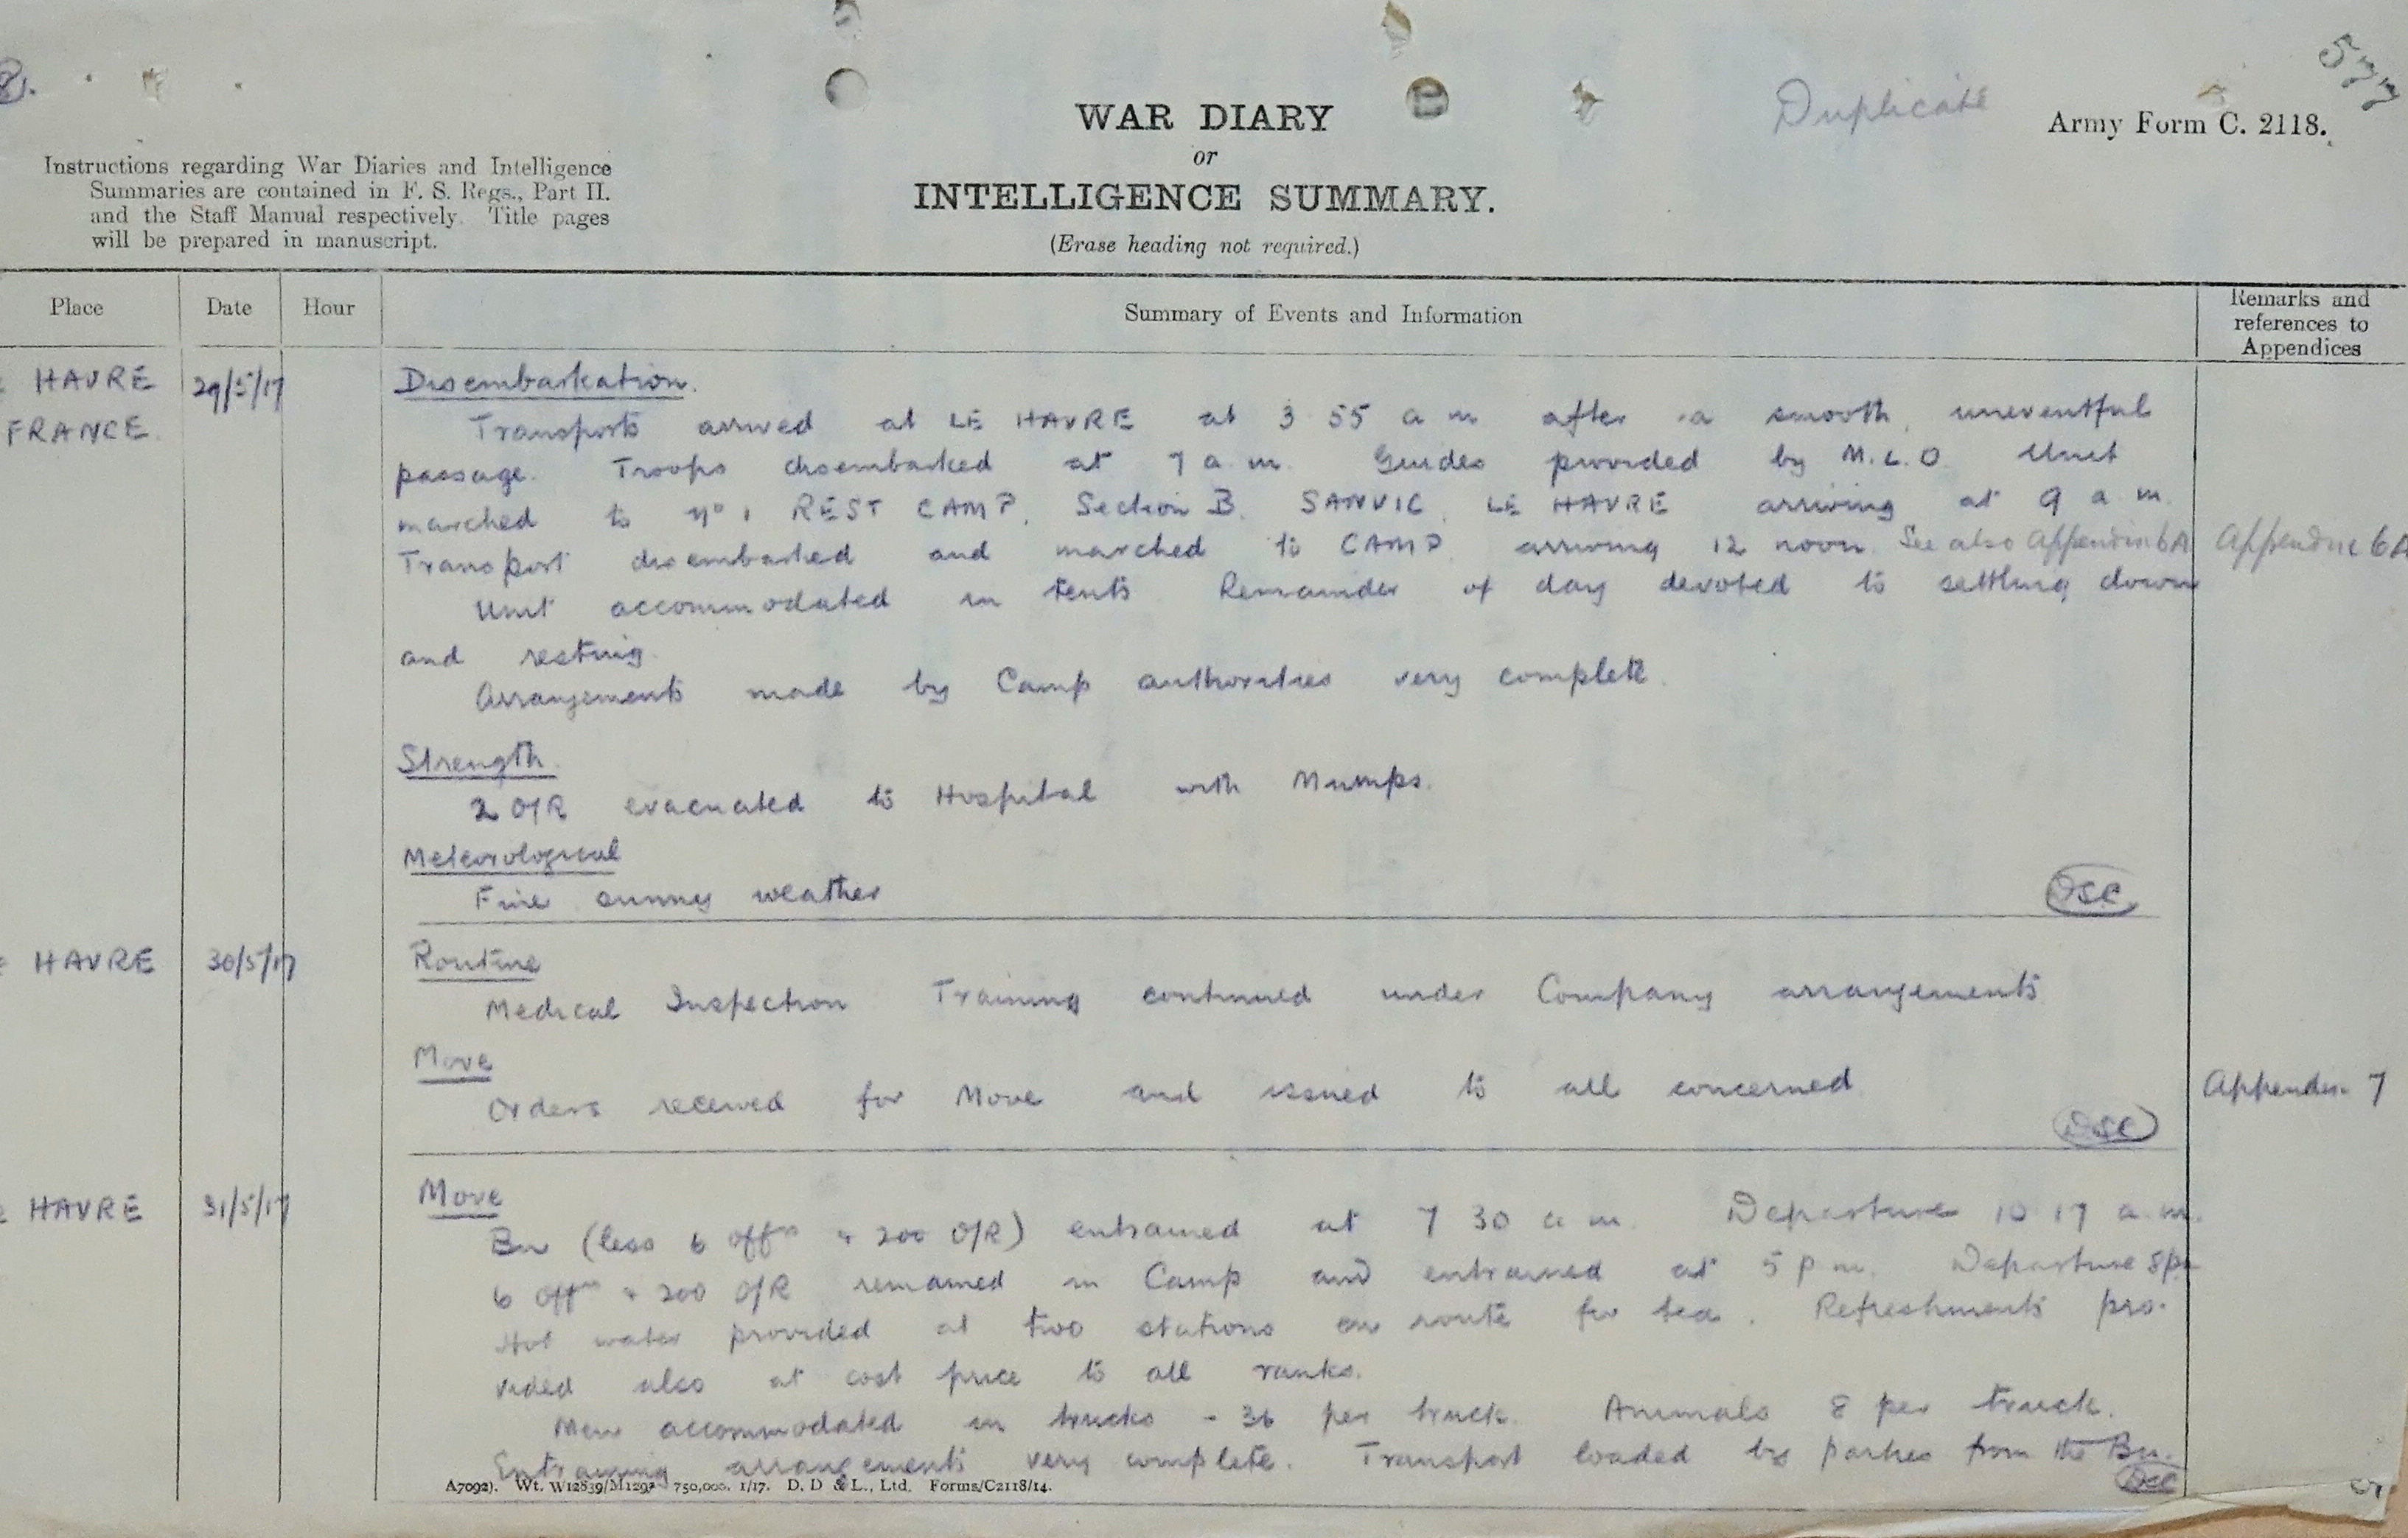 8.
577
Duplicate
Army Form C. 2118.
WAR DIARY
or
INTELLIGENCE SUMMARY.
(Erase heading not required.)
Instructions regarding War Diaries and Intelligence
Summaries are contained in F. S. Regs., Part II.
and the Staff Manual respectively. Title pages
will be prepared in manuscript.
Place Date Hour Summary of Events and Information Remarks and references to Appendices
HAVRE 29/5/17 Disembarkation.
FRANCE. Transports arrived at LE HAVRE at 3 55 a m after a smooth, uneventful
passage. Troops disembarked at 7 a.m. Guides provided by M.L.O. Unit
marched to No 1 REST CAMP, Section B. SANVIC, LE HAVRE arriving at 9 a.m.
Transport disembarked and marched to CAMP arriving 12 noon. See also Appendix 6A Appendix 6A
Unit accommodated in tents Remainder of day devoted to settling down
and resting.
Arrangements made by Camp authorities very complete.
Strength.
2 O/R evacuated to Hospital with Mumps.
Meteorological
Fine sunny weather DSC
HAVRE 30/5/17 Routine
Medical Inspection Training continued under Company arrangements
Move
Orders received for Move and issued to all concerned Appendix 7
DSC
HAVRE 31/5/17 Move
Bn (less 6 offrs & 200 O/R) entrained at 7 30 a m. Departure 10 17 a.m.
6 offrs & 200 O/R remained in Camp and entrained at 5 p m. Departure 8 pm
Hot water provided at two stations en route for tea. Refreshments pro-
vided also at cost price to all ranks.
Men accommodated in trucks - 36 per truck. Animals 8 per truck.
Entraining arrangements very complete. Transport loaded by parties from the Bn.
DSC
A7092). Wt. W12839/M1293 750,000. 1/17. D. D & L., Ltd. Forms/C2118/14.